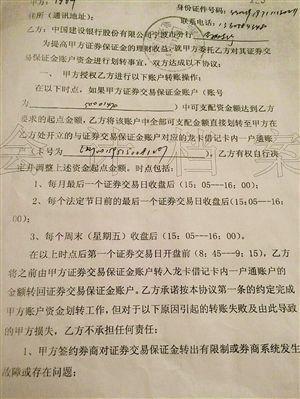 甲方:
身份证件号码:
住所(通讯地址):
联系电话:
乙方:中国建设银行股份有限公司宁波市分行
为提高甲方证券交易保证金的理财收益,就甲方委托乙方对其证券交
易保证金账户资金进行划转事宜,双方达成以下协议:
一、甲方授权乙方进行以下账户转账操作:
在以下时点,如果甲方证券交易保证金账户(账号
)中可支配资金额达到乙方
要求的起点金额,乙方将该账户中全部可支配金额直接划转至甲方在
乙方处开立的与证券交易保证金账户对应的龙卡借记卡内一户通账
户(卡号为
),乙方有权自行决
定并调整上述资金起点金额。时点包括:
1、每月最后一个证券交易日收盘后(15:05---16:00);
2、每个法定节日前的最后一个证券交易日收盘后(15:05---16:
00);
3、每个周末(星期五)收盘后(15:05---16:00);
在以上时点后第一个证券交易日开盘前(8:45---9:15),乙方
将之前由甲方证券交易保证金账户转入龙卡借记卡内一户通账户的
金额转回证券交易保证金账户。乙方承诺按本协议第一条的约定完成
甲方账户资金划转工作,但对于以下原因引起的转账失败及由此导致
的甲方损失,乙方不承担任何责任:
1、甲方签约券商对证券交易保证金转出有限制或券商系统发生
故障或存在问题;